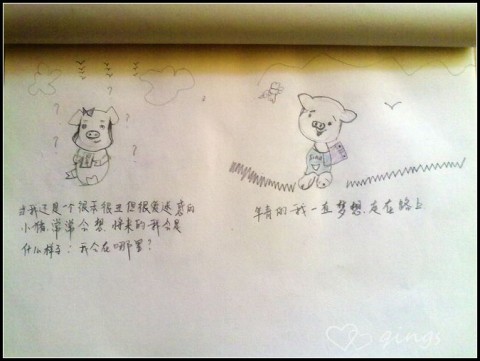 当我还是一个很呆很丑但很爱迷惑的
小猪.常常会想.将来的我会是
什么样子：我会在哪里？
年青的我一直梦想.走在路上
gings